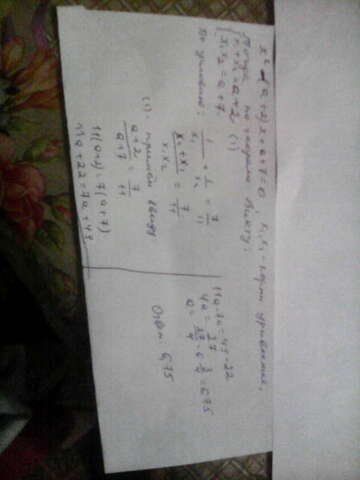 x² - (a+2)x + a+7 = 0, x₁, x₂ - корни уравнения.
Тогда по теореме Виета:
{ x₁ + x₂ = a+2 (1)
{ x₁x₂ = a+7.
По условию: 1/x₁ + 1/x₂ = 7/11
(x₂ + x₁)/(x₁x₂) = 7/11
(1)
(a+2)/(a+7) = 7/11
11(a+2) 7(a+7)
11a+22=7a+49
11a-7a=49-22
4a = 27
a = 27/4 = 6 3/4 = 6,75
Ответ: 6,75